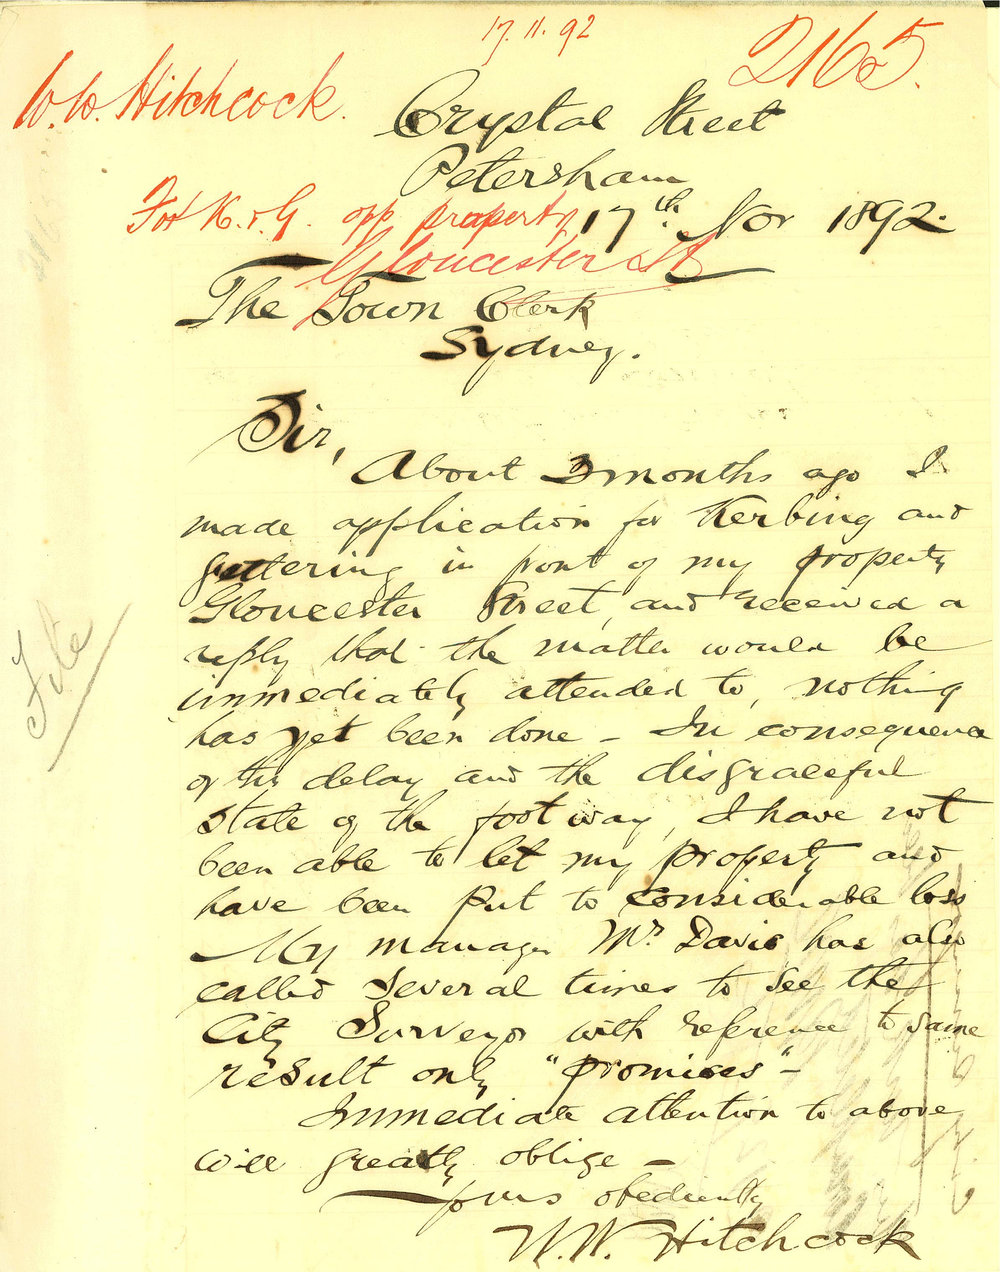 17.11.92
2165.
W.W. Hitchcock.
Crystal Street
Petersham
For K. & G. opp property
Gloucester St
17th Nov 1892.
The Town Clerk
Sydney.
Sir,
About 3 months ago I
made application for Kerbing and
guttering in front of my property
Gloucester Street, and received a
reply that the matter would be
immediately attended to, nothing
has yet been done - In consequence
of this delay and the disgraceful
state of the footway, I have not
been able to let my property and
have been put to considerable loss
My manager Mr Davis has also
called several times to see the
City Surveyor with reference to same
result only "promises" -
Immediate attention to above
will greatly oblige -
Yours obediently
W.W. Hitchcock
File